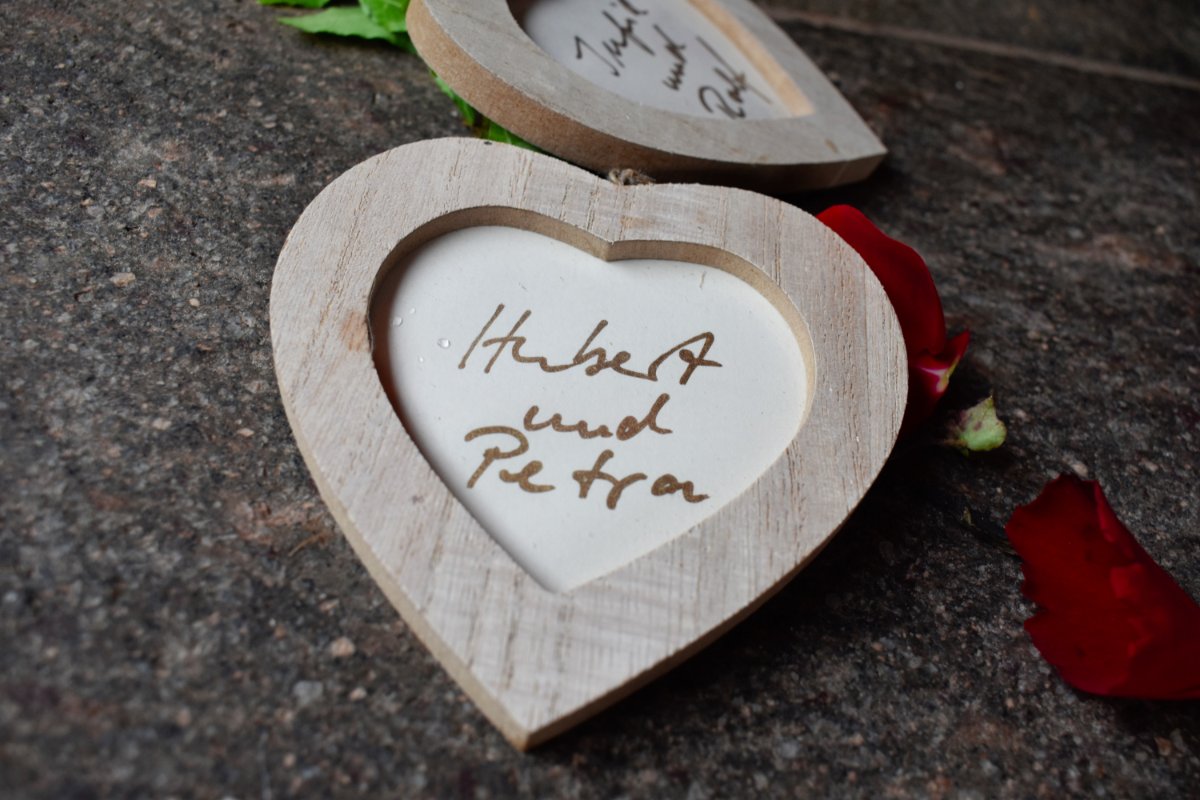 und
Ralf
Hubert
und
Petra